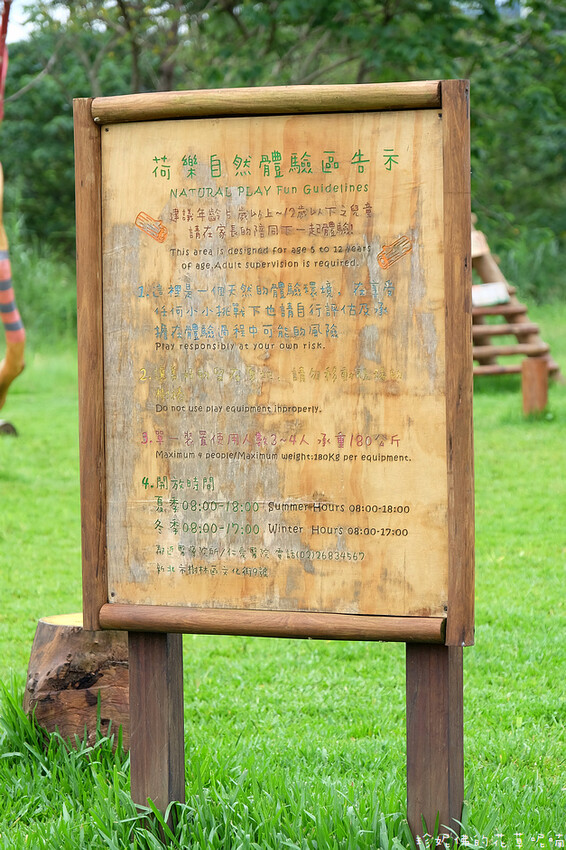 荷樂自然體驗區告示
NATURAL PLAY Fun Guidelines
建議年齡5歲以上~12歲以下之兒童
請在家長的陪同下一起體驗!
This area is designed for age 5 to 12 years
of age.Adult supervision is required.
1.這裡是一個天然的體驗環境,
任何小小挑戰下也請自行評估及承
擔在體驗過程中可能的風險
Play responsibly at your own risk.
2.
Do not use play equipment inproperly.
3.單一裝置使用人數3~4人 承重180公斤
Maximum 4 people/Maximum weight:180Kg per equipment.
4.開放時間
夏季08:00-18:00 Summer Hours 08:00-18:00
冬季08:00-17:00 Winter Hours 08:00-17:00
鄰近醫療診所/仁愛醫院 電話(02)26834567
新北市樹林區文化街9號
珍妮佛的花草呢喃